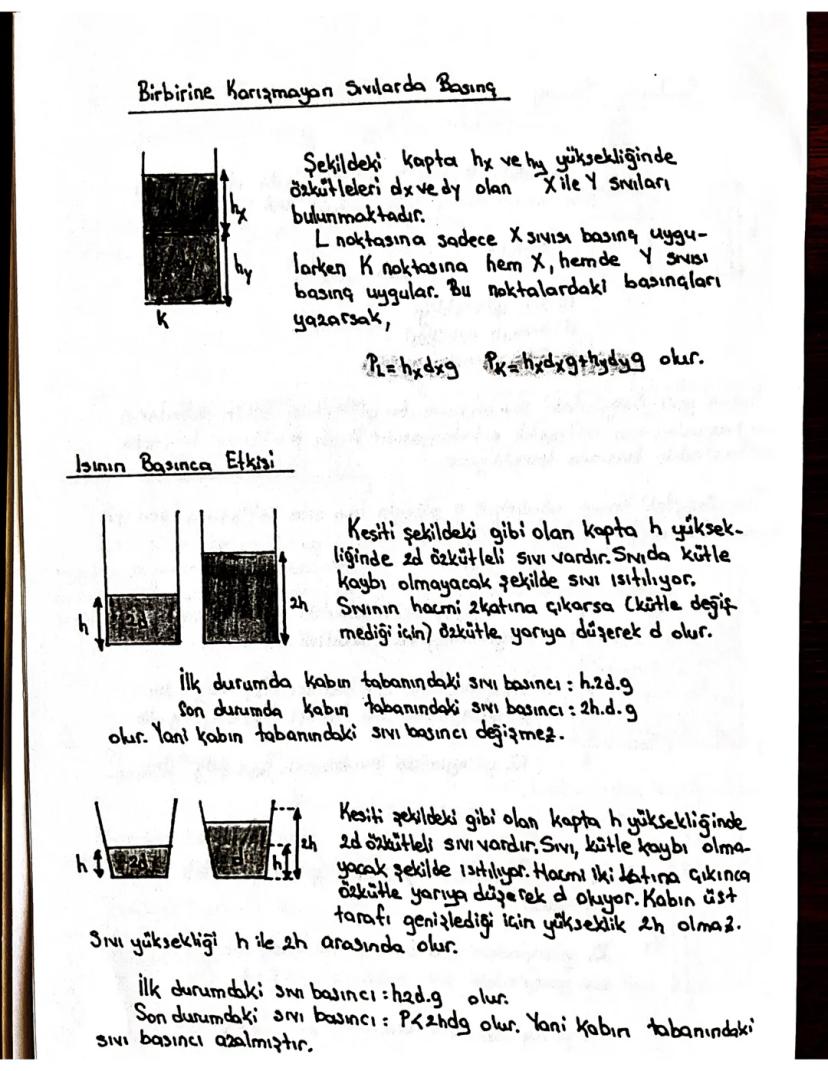 Birbirine Karışmayan Sıvılarda Basınç
Şekildeki kapta hx ve hy yüksekliğinde
özkütleleri dx ve dy olan X ile Y sıvıları
bulunmaktadır.
L noktasına sadece X sıvısı basınç uygu-
larken K noktasına hem X, hemde Y sıvısı
basınç uygular. Bu noktalardaki basınçları
yazarsak,
hx
hy
K
PL = hxdxg PK = hxdxg+hydyg olur.
Isının Basınca Etkisi
Kesiti şekildeki gibi olan kapta h yüksek-
liğinde 2d özkütleli sıvı vardır. Sıvıda kütle
kaybı olmayacak şekilde sıvı ısıtılıyor.
Sıvının hacmi 2katına çıkarsa (kütle değiş-
mediği için) özkütle yarıya düşerek d olur.
h 2d 2h
İlk durumda kabın tabanındaki sıvı basıncı : h.2d.g
Son durumda kabın tabanındaki sıvı basıncı : 2h.d.g
olur. Yani kabın tabanındaki sıvı basıncı değişmez.
Kesiti şekildeki gibi olan kapta h yüksekliğinde
2d özkütleli sıvı vardır. Sıvı, kütle kaybı olma-
yacak şekilde ısıtılıyor. Hacmi iki katına çıkınca
özkütle yarıya düşerek d oluyor. Kabın üst
tarafı genişlediği için yükseklik 2h olmaz.
h 2d d h 2h
Sıvı yüksekliği h ile 2h arasında olur.
İlk durumdaki sıvı basıncı : h2d.g olur.
Son durumdaki sıvı basıncı : P<2hdg olur. Yani kabın tabanındaki
sıvı basıncı azalmıştır.